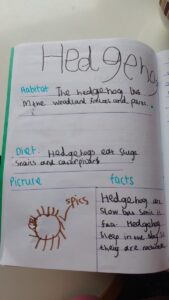 Hedgehog
Habitat The hedgehog live
in the woodland forests and parks.
Diet: Hedgehogs eat slugs
snails and caterpillars
Picture
facts
spics
Hedgehog are
slow but Sonic is
fast. Hedgehog
sleep in the day
they are